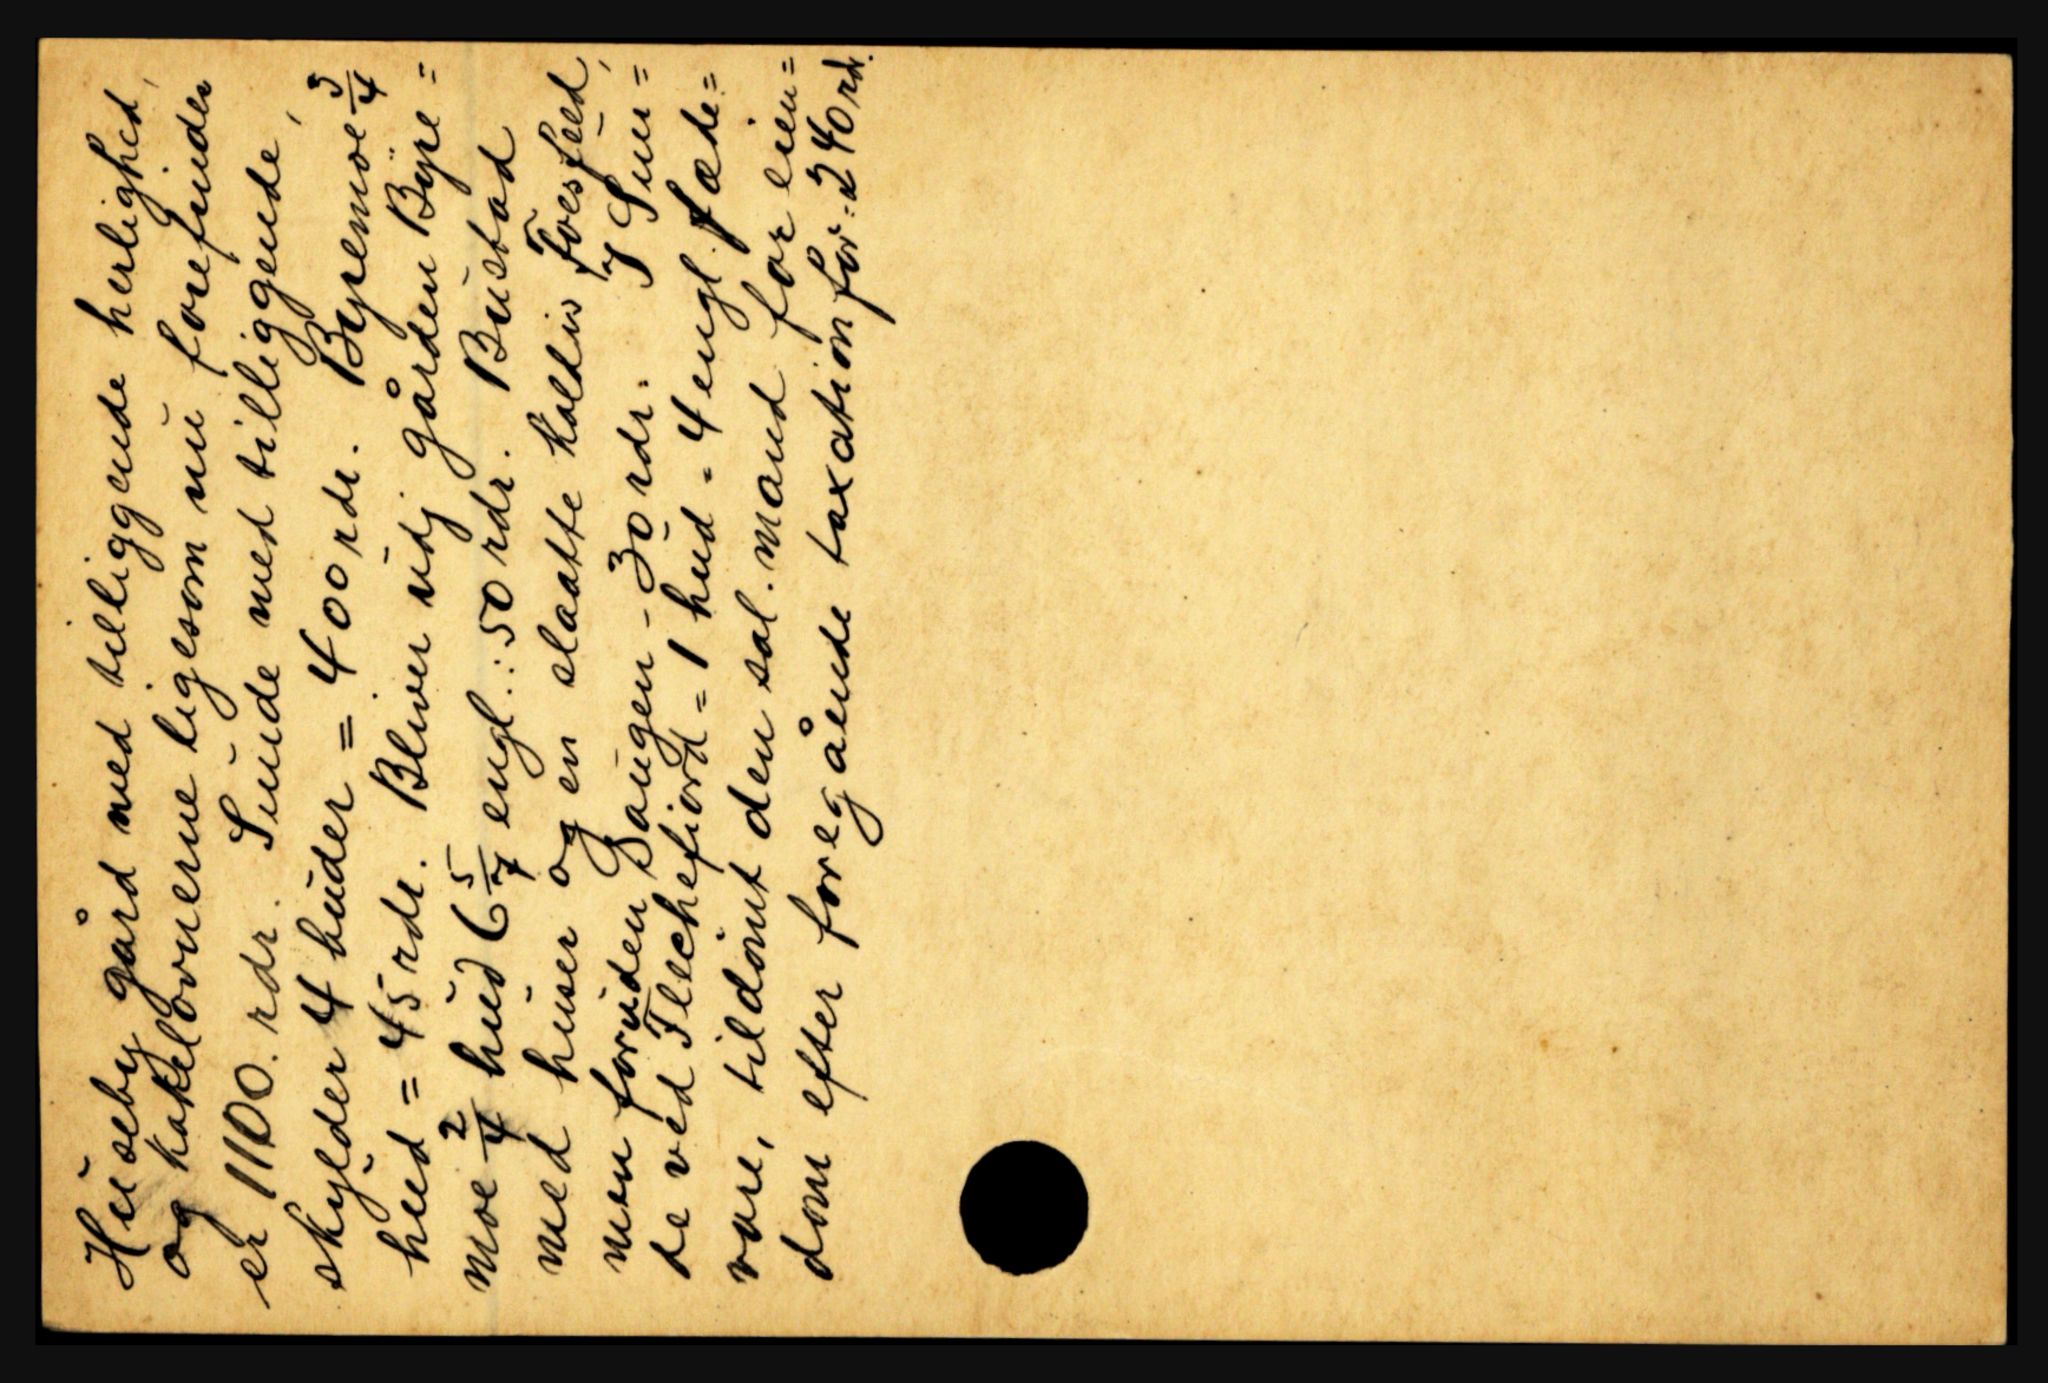 Huseby gård med tilliggende herlighed,
og kakelovnerne ligesom nu forefindes
er 1100. rdr. Sunde med tilliggende,
skylder 4 huder = 400 rdr. Byremoe 3/4
hud = 45 rdr. Bliver udj gården Byre=
moe 2/4 hud 6 5/7 engl.: 50 rdr. Bustad
med huser og en slaatte kaldis Foesfeed,
men foruden Saugen - 30 rdr. J Sun=
de ved Flechefiord = 1 hud - 4 engl. fæde=
vare, tildømt den sal. mand for eien=
dom efter foregående taxation for = 240 rd.